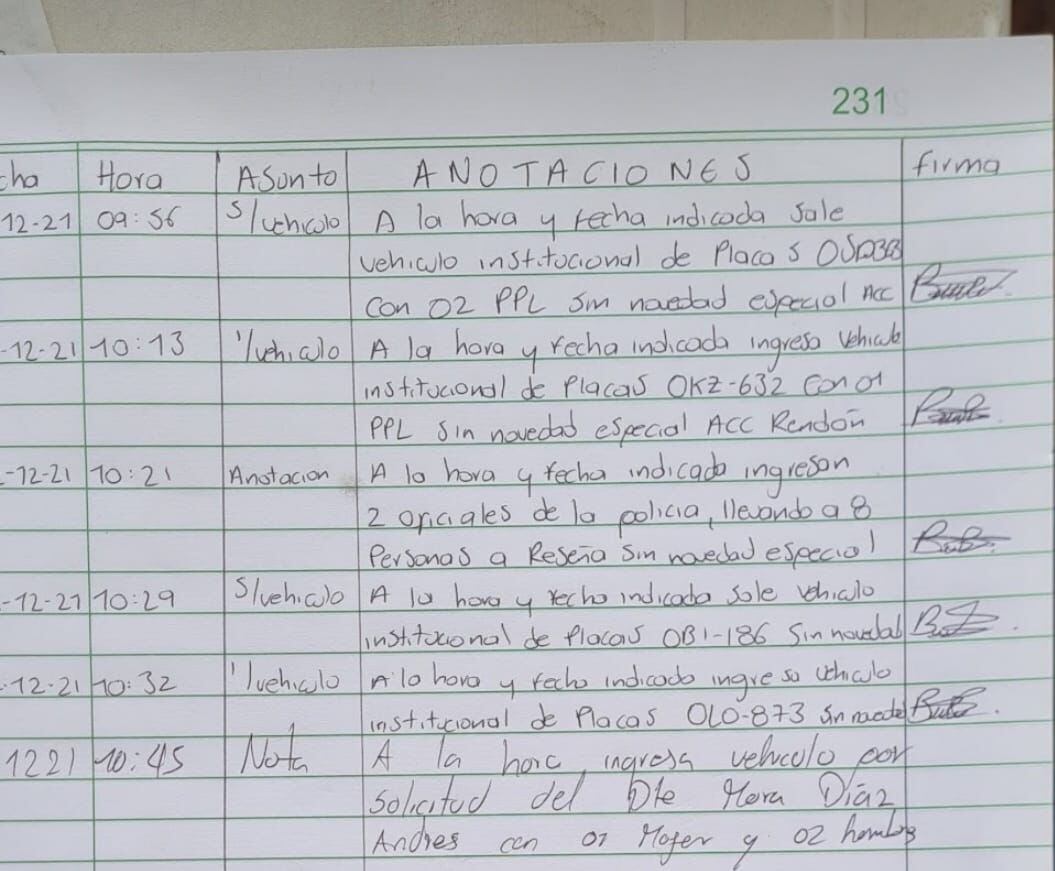 231
cha Hora Asunto ANOTACIONES firma
12-21 09:56 S/vehiculo A la hora y fecha indicada sale
vehiculo institucional de Placas
Con 02 PPL sin novedad especial Acc
-12-21 10:13 '/vehiculo A la hora y fecha indicada ingresa vehiculo
institucional de Placas OKZ-632 con 01
PPL sin novedad especial ACC Rendón
-12-21 10:21 Anotacion A la hora y fecha indicada ingresan
2 oficiales de la policia, llevando a 8
Personas a Reseña sin novedad especial
-12-21 10:29 S/vehiculo A la hora y fecha indicada sale vehiculo
institucional de Placas OBI-186 sin novedad
-12-21 10:32 '/vehiculo A la hora y fecha indicada ingresa vehiculo
institucional de Placas OLO-873 sin
1221 10:45 Nota A la hora, ingresa vehculo por
Solicitud del Dte Mora Díaz
Andres con 01 Mojer y 02 hombres